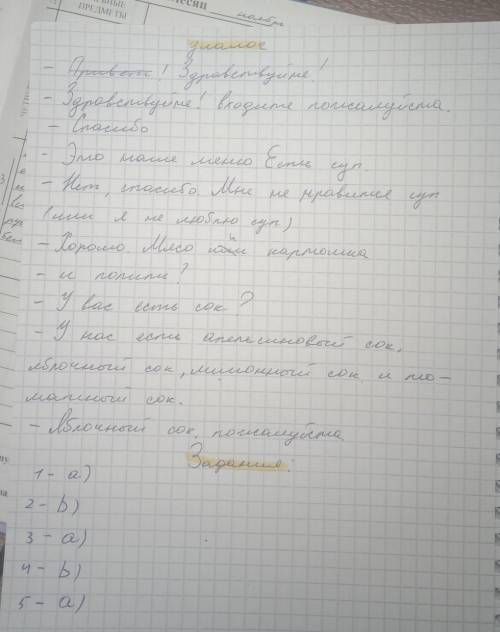 ПРЕДМЕТЫ
ноябрь
диалог
- Привет! Здравствуйте!
- Здравствуйте! входите пожалуйста.
- Спасибо
- Это наше меню Есть суп.
- Нет, спасибо. Мне не нравится суп
(или я не люблю суп)
- Хорошо. Мясо и картошка
- и попить?
- У вас есть сок?
- У нас есть апельсиновый сок,
яблочный сок, лимонный сок и то-
матный сок.
- Яблочный сок, пожалуйста
Задания:
1 - a)
2 - b)
3 - a)
4 - b)
5 - a)